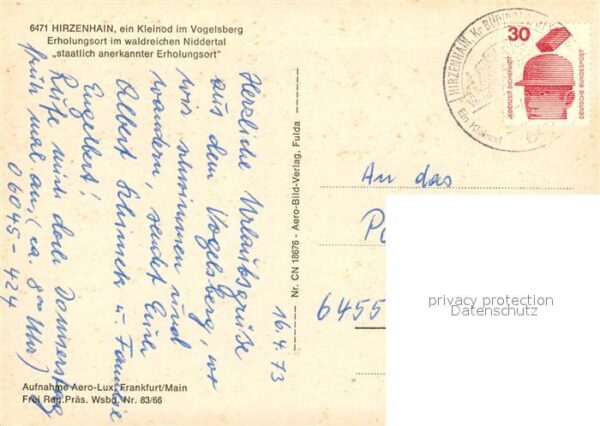 6471 HIRZENHAIN, ein Kleinod im Vogelsberg
Erholungsort im waldreichen Niddertal
„staatlich anerkannter Erholungsort"
Herzliche Urlaubsgrüße
aus dem Vogelsberg, wo
wir schwimmen und
wandern, sendet Euer
Albert Schimek u. Familie
Engelbert!
Rufe mich doch Donnerstag
früh mal an, (ca 8⁰⁰ Uhr)
06045-424
16.4.73
Aufnahme Aero-Lux, Frankfurt/Main
Frei Reg.Präs. Wsbd. Nr. 83/66
Nr. CN 18676 - Aero-Bild-Verlag, Fulda
HIRZENHAIN, Kr BÜDINGEN
Ein Kleinod
30
JEDERZEIT SICHERHEIT
DEUTSCHE BUNDESPOST
An das
6455
privacy protection
Datenschutz